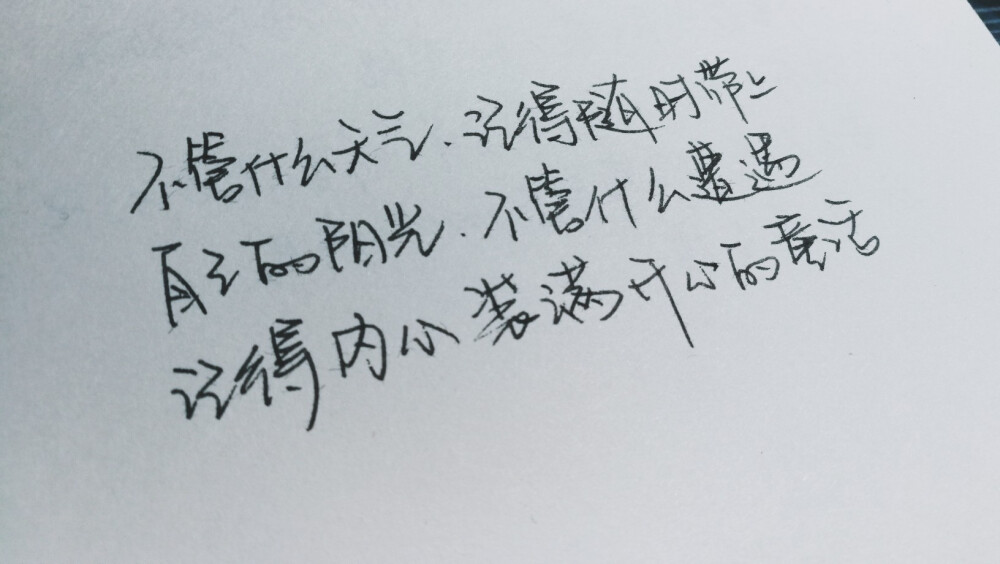 不管什么天气、记得随时带上
自己的阳光、不管什么遭遇
记得内心装满开心的童话